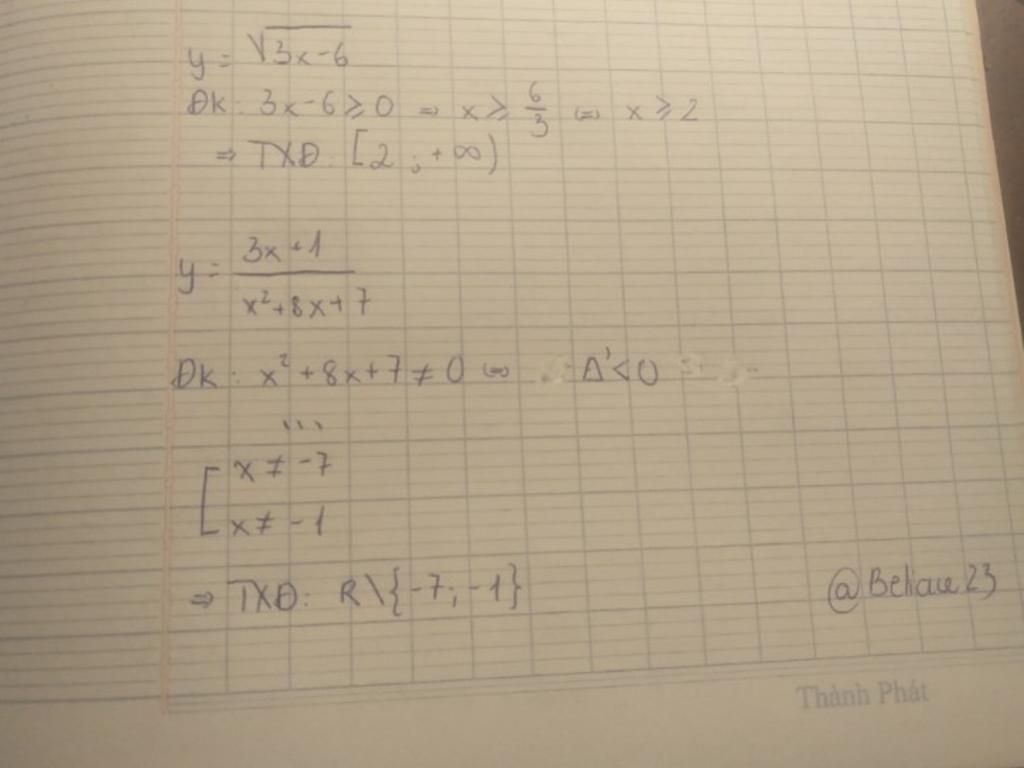 y = √3x-6
ĐK: 3x-6 ≥ 0 ⇒ x ≥ 6/3 ⇔ x ≥ 2
⇒ TXĐ: [2; +∞)
y = 3x+1 / x²+8x+7
ĐK: x²+8x+7 ≠ 0 ⇔ Δ' < 0
...
[ x ≠ -7
x ≠ -1
⇒ TXĐ: R\{-7; -1}
Thành Phát